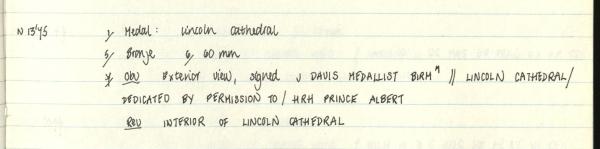 N 13745 1/ Medal: Lincoln Cathedral
5/ Bronze 6/ 60 mm
8/ Obv Exterior view, signed J DAVIS MEDALLIST BIRMM // LINCOLN CATHEDRAL/
DEDICATED BY PERMISSION TO / HRH PRINCE ALBERT
Rev INTERIOR OF LINCOLN CATHEDRAL